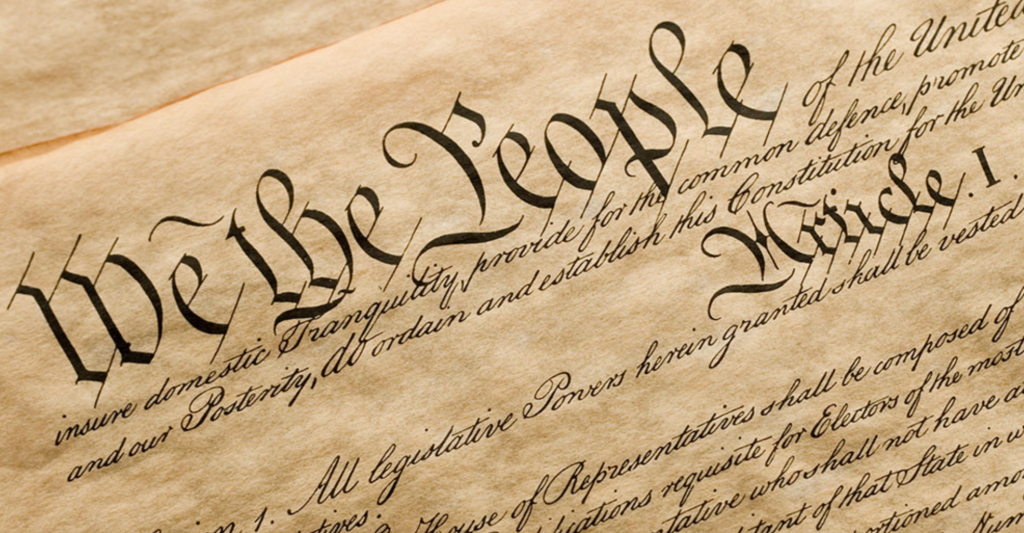 We the People of the United
insure domestic Tranquility, provide for the common defence, promote
and our Posterity, do ordain and establish this Constitution for the Un
Article. I.
n. 1. All legislative Powers herein granted shall be vested
tives.
House of Representatives shall be composed of
ications requisite for Electors of the most
tative who shall not have a
tant of that State in w
rtioned amo
Num